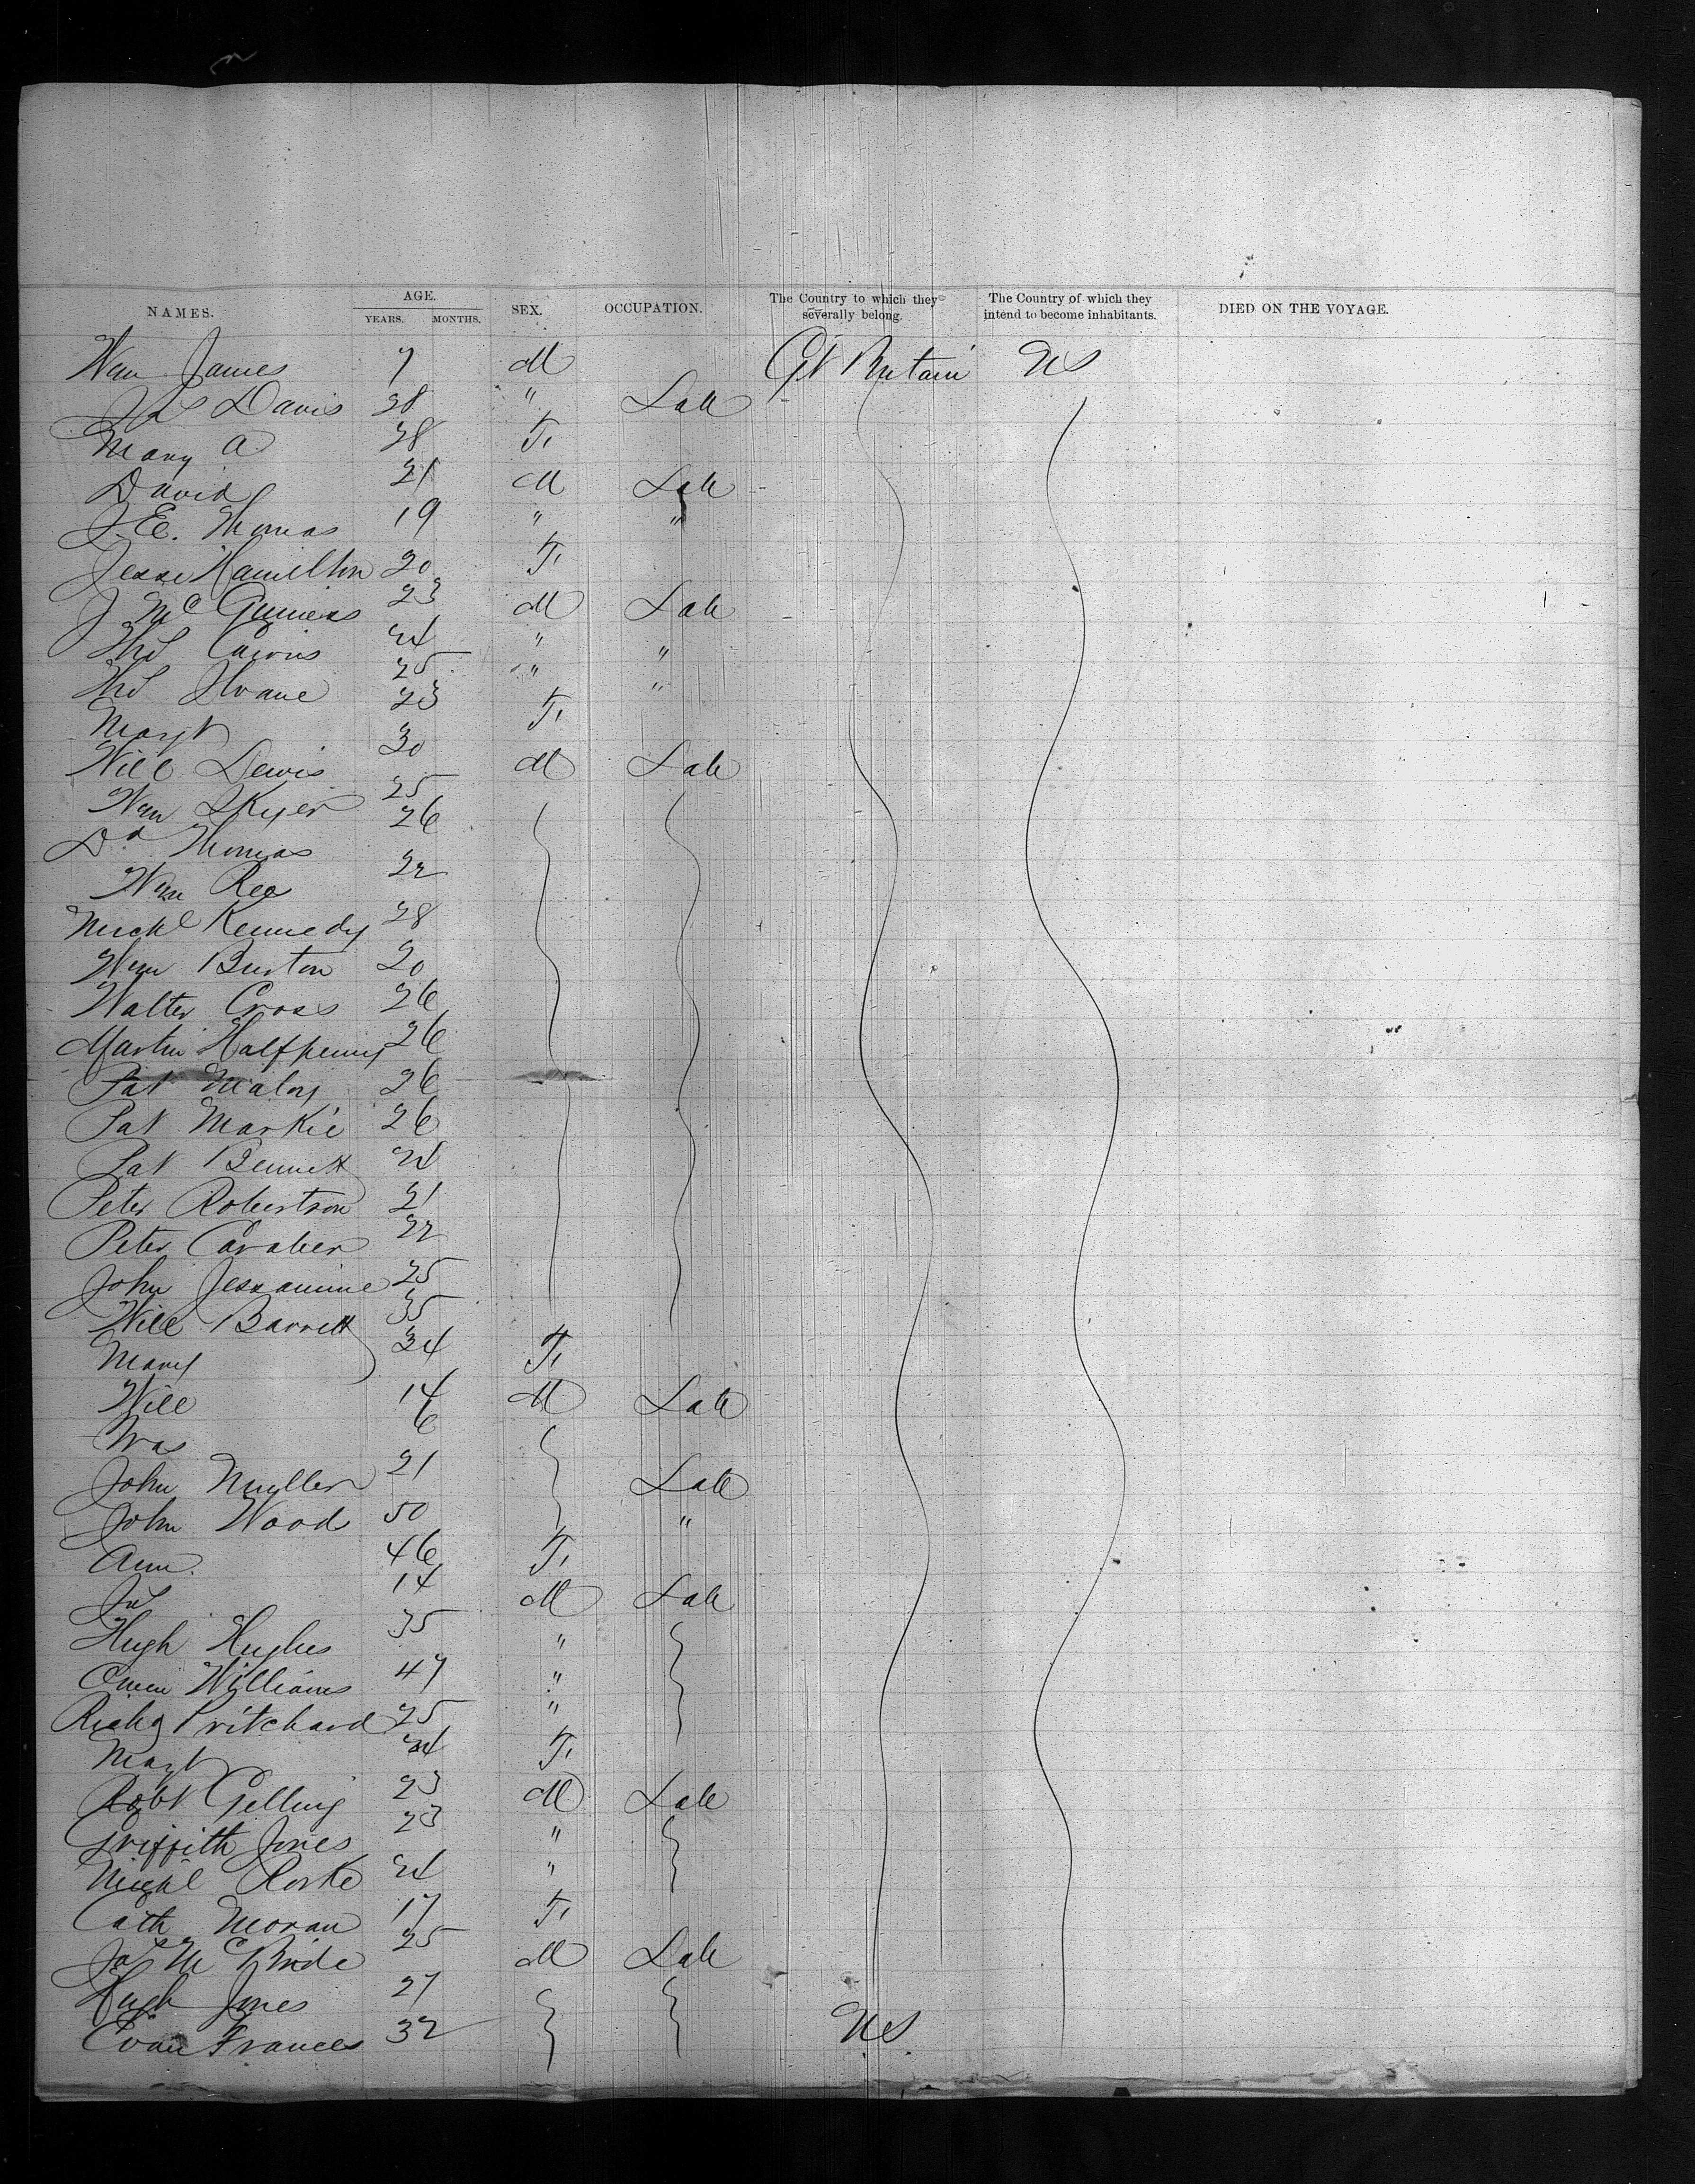 NAMES. AGE. YEARS. MONTHS. SEX. OCCUPATION. The Country to which they severally belong. The Country of which they intend to become inhabitants. DIED ON THE VOYAGE.
Wm James 7 M Gt Britain US
Jas Davis 28 " Lab
Mary A 28 F.
David 21 M Lab
J. E. Thomas 19 " "
Jesse Hamilton 20 F.
J McGuiness 23 M Lab
Thos Cairns 24 " "
Thos Sloane 25 " "
Margt 23 F.
Will Lewis 30 M Lab
Wm 25
Dd Thomas 26
Wm Rea 22
Michl Kennedy 28
Wm Burton 20
Walter Cross 26
Martin Halfpenny 26
Pat Maloy 26
Pat Markie 26
Pat Bennett 24
Peter Robertson 21
Peter 22
John Jessamine 25
Will Barrett 35
Mary 34 F.
Will 14 M Lab
6
John 21 Lab
John Wood 50 "
Ann. 46 F.
Jas 14 M Lab
Hugh Hughes 35 "
Owen Williams 47 "
Richd Pritchard 25 "
Margt 24 F.
Robt Gelling 23 M Lab
Griffith Jones 23 "
Michl Rorke 24 "
Cath Moran 17 F.
Jas McBride 25 M Lab
Hugh Jones 27
Evan Frances 32 US